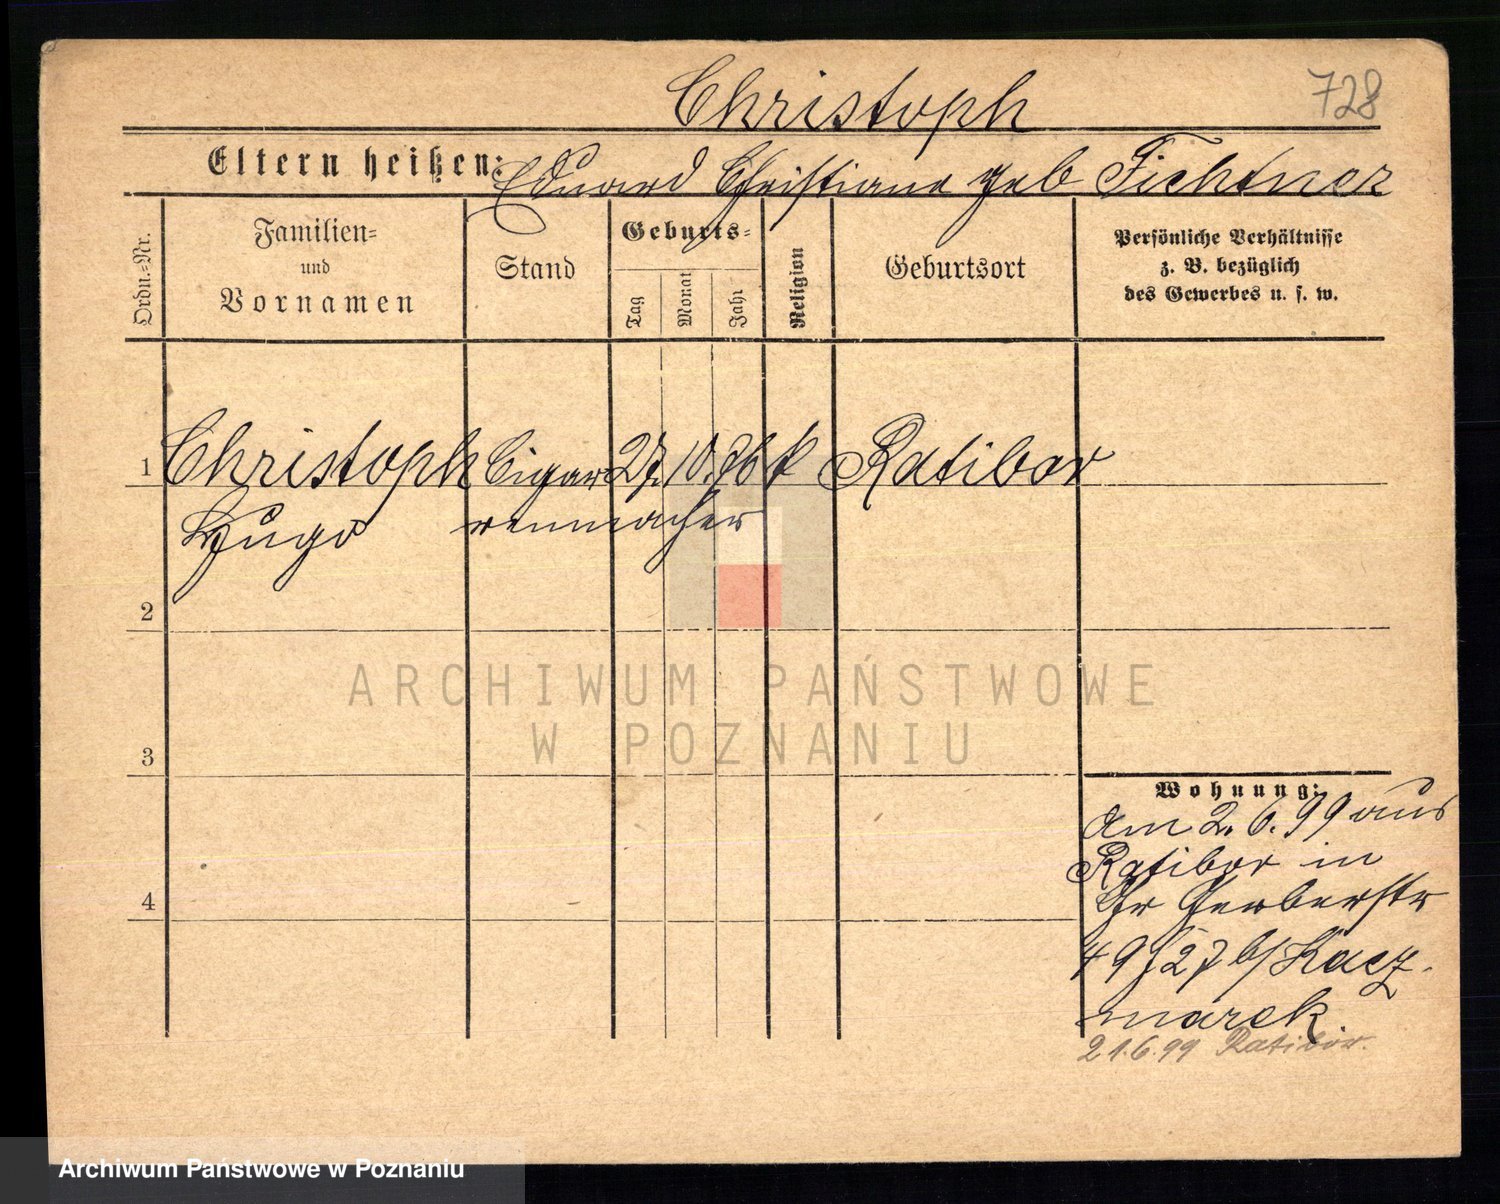 Christoph
728
Eltern heißen: Eduard Christiane geb Fichtner
Ordn.=Nr.
Familien=
und
Vornamen
Stand
Geburts=
Tag
Monat
Jahr
Religion
Geburtsort
Persönliche Verhältnisse
z. B. bezüglich
des Gewerbes u. s. w.
1 Christoph Cigar 27. 10. 76 k Ratibor
Hugo renmacher
2
ARCHIWUM PAŃSTWOWE
W POZNANIU
3
Wohnung:
Am 2. 6. 99 aus
Ratibor in
Gr Gerberstr
49 b/ Kacz
4
marek
21.6.99 Ratibor.
Archiwum Państwowe w Poznaniu